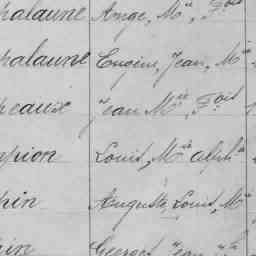 halaune Ange, Mie, Fois
halaune Eugène, Jean, Mie
heaux Jean Mie, Fois
mpion Louis, Mie Alph.se
pin Auguste, Louis, Mie
pin Georges Jean